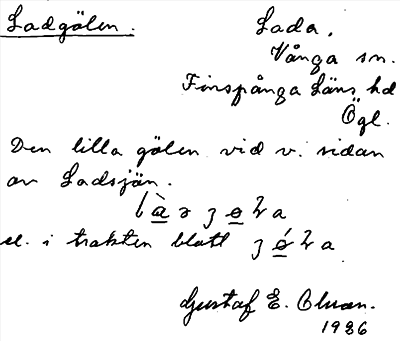 Ladgölen.
Lada.
Vånga sn.
Finspånga läns hd
Ögl.
Den lilla gölen vid v. sidan
av Ladsjön.
el. i trakten blott
Gustaf E.
1926